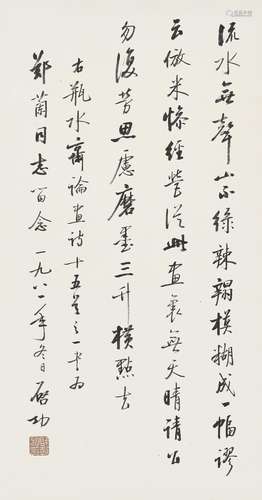 流水無聲山不綠辣模糊成一幅謬
云倣米慘經營從此畫裏無天晴請公
勿復勞思慮磨墨三升橫點去
右瓶水齋論畫詩十五首之一書為
鄭同志留念一九八年冬日啟功